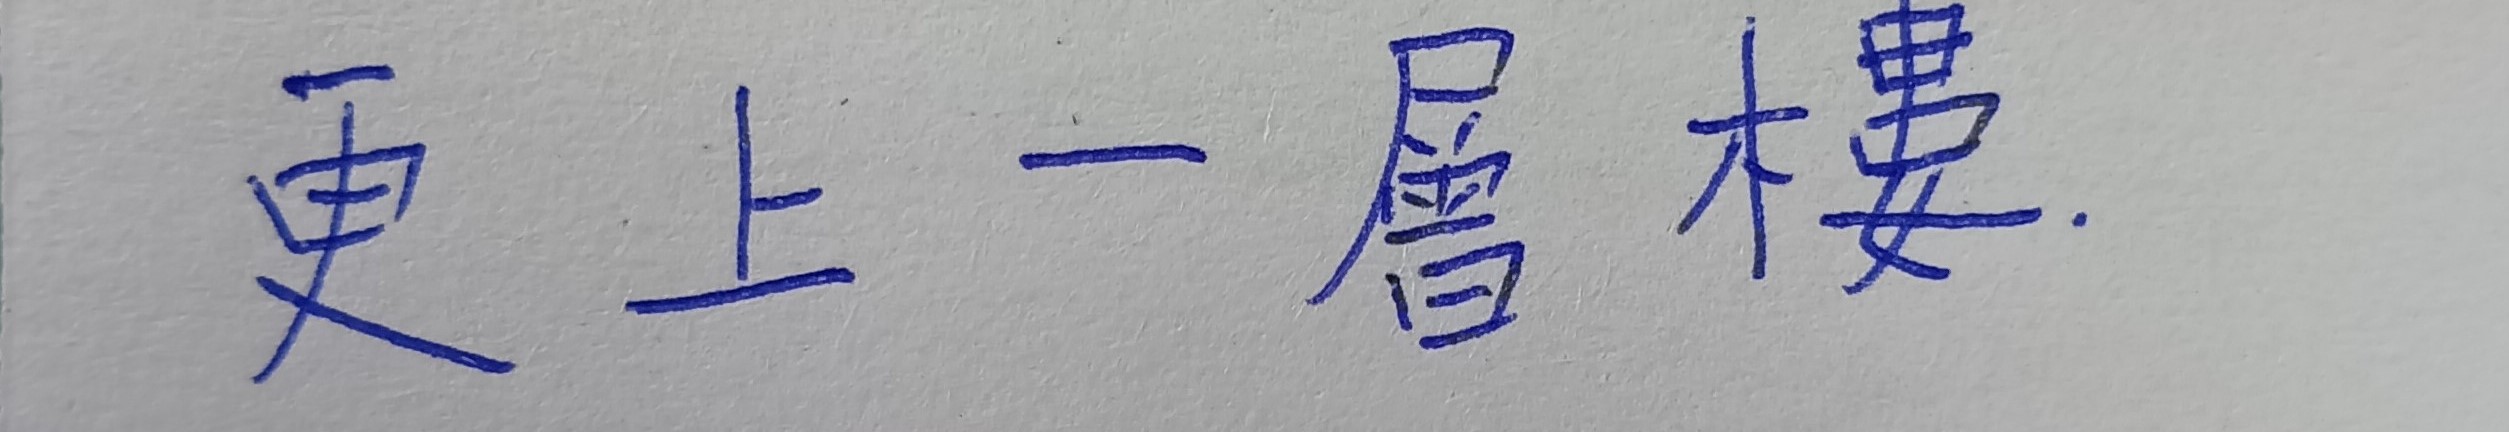 更上一層樓.